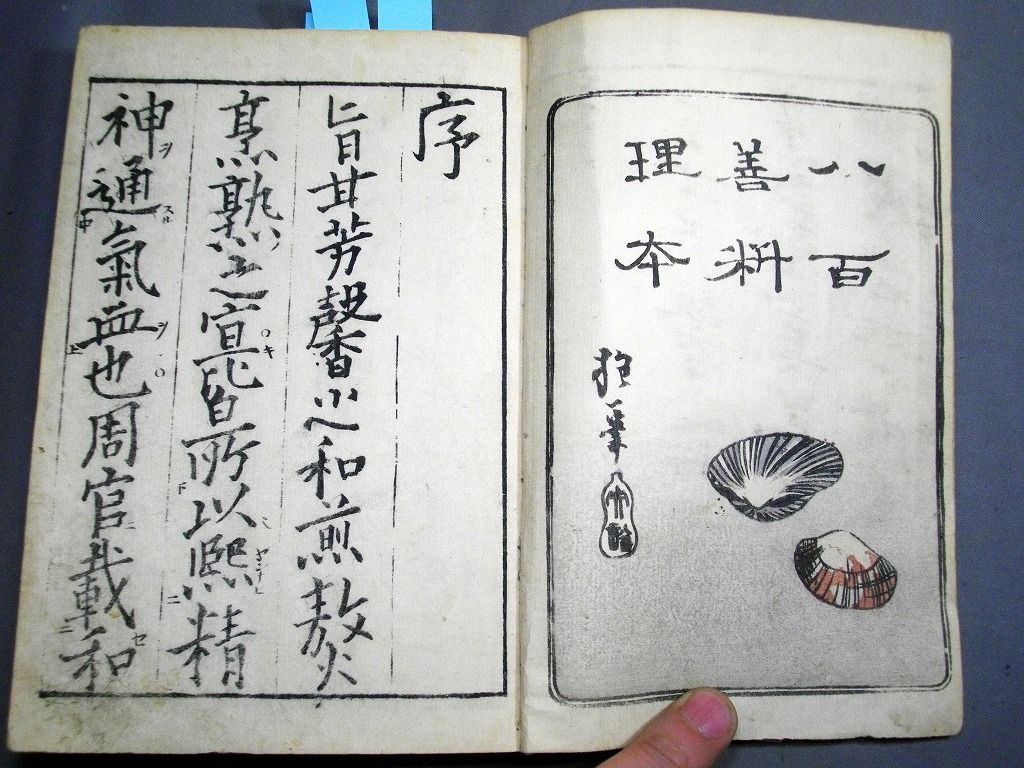 八百
善料
理本
抱一筆
文詮
序
旨甘芳馨之和煎熬
烹熟之宜皆所以熙精
神通氣血也周官載和